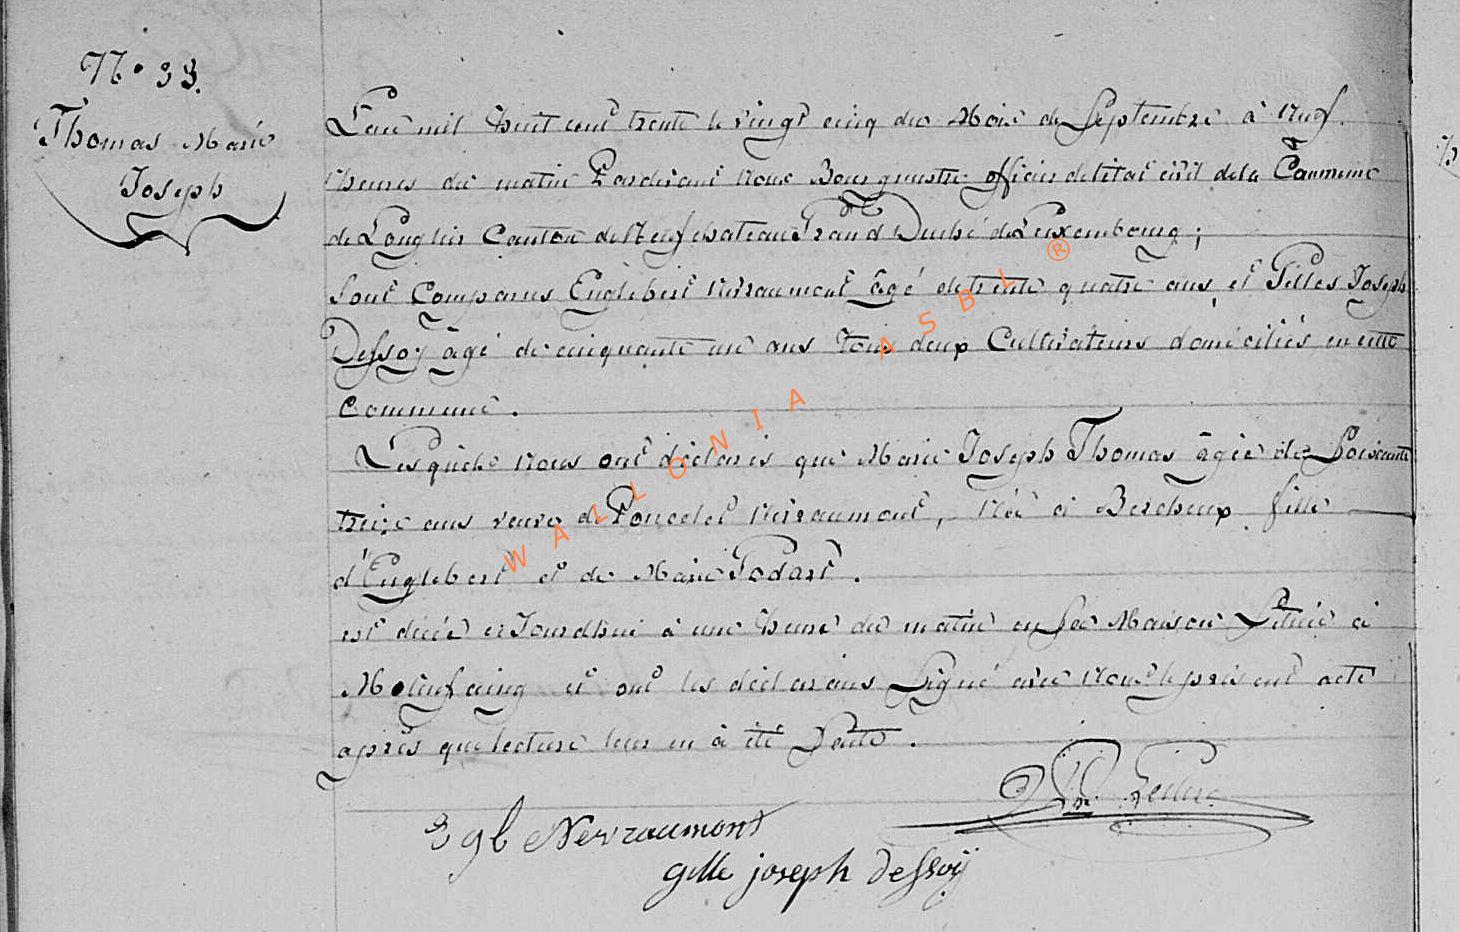 N° 33.
Thomas Marie
Joseph
L'an mil huit cent trente le vingt cinq du Mois de Septembre à Neuf
heures du matin Pardevant Nous Bourgmestre officier de létat civil de la Commune
de Longlier Canton de Neufchateau Grand Duché de Luxembourg ;
Sont Comparus Englebert Nivraumont âgé de trente quatre ans, et Gilles Joseph
Dessoy âgé de cinquante un ans tous deux Cultivateurs domiciliés en cette
Commune .
Lesquels Nous ont déclarés que Marie Joseph Thomas âgée de Soixante
treize ans veuve de Poncelet Nivraumont, Née à Bercheux fille
d'Englebert et de Marie Godart .
est décédé à une heure du matin en Sa Maison Située à
Molinfaing et ont les déclarans Signé avec Nous le présent acte
après que lecture leur en à été faite .
Egl Nevraumont
gille joseph dessoÿ
WALLONIA ASBL ®